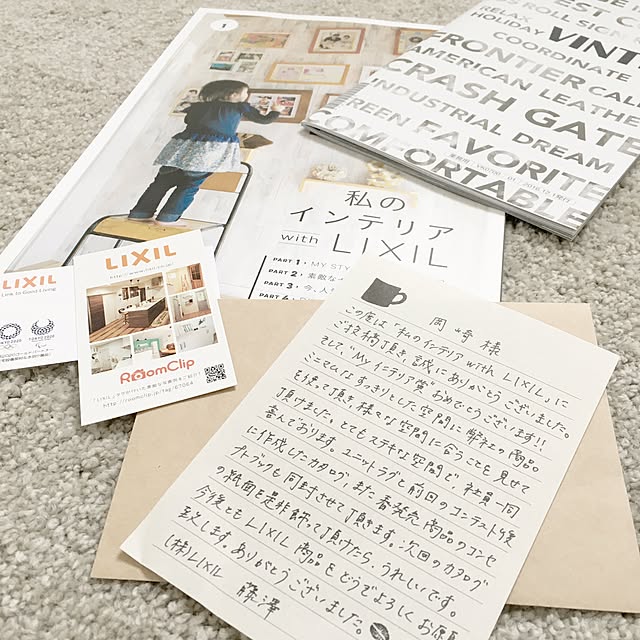 1
私の
インテリア
with LIXIL
PART 1・MY STY
PART 2・素敵な
PART 3・今、人
PART 4・
EST C
ROLL SIGN
RELAX
HOLIDAY VINT
COORDINATE
FRONTIER CAL
AMERICAN LEATHE
CRASH GATE
INDUSTRIAL DREAM
GREEN FAVORITE
COMFORTABLE
LIXIL
Link to Good Living
TOKYO 2020
LIXIL
RoomClip
http://roomclip.jp/tag/67064
岡崎 様
この度は「私のインテリア with LIXIL」に
ご投稿頂き、誠にありがとうございました。
そして、Myインテリア賞、おめでとうございます!!
とてもすっきりとした空間に弊社の商品
を使って頂き、様々な空間に合うことを見せて
頂けました。とてもステキな空間で、社員一同
喜んでおります。ユニットラグと前回のコンテスト後
に作成したカタログ、また春発売商品のコンセ
プトブックも同封させて頂きます。次回のカタログ
の紙面を是非飾って頂けたら、うれしいです。
今後ともLIXIL商品をどうぞよろしくお願い
致します。ありがとうございました。
(株)LIXIL 藤澤